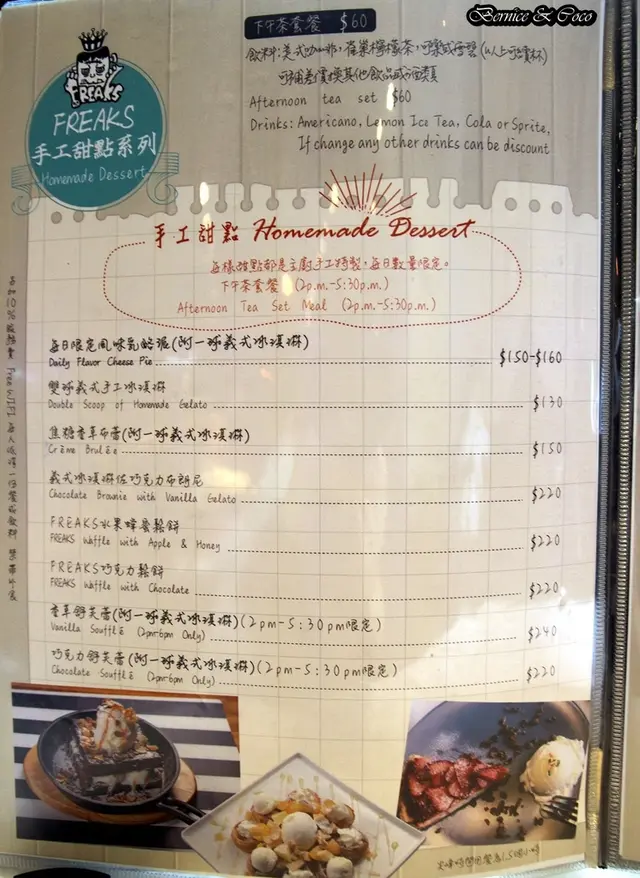 Bernice & Coco
下午茶套餐 $60
飲料:美式咖啡,蓓蕾檸檬茶,可樂或雪碧(以上可續杯)
可補差價換其他飲品或酒類
Afternoon tea set $60
Drinks: Americano, Lemon Ice Tea, Cola or Sprite,
If change any other drinks can be discount
FREAKS
FREAKS
手工甜點系列
Homemade Dessert
手工甜點 Homemade Dessert
每樣甜點都是主廚手工特製,每日數量限定。
下午茶套餐 (2p.m.-5:30p.m.)
Afternoon Tea Set Meal (2p.m.-5:30p.m.)
每日限定風味乳酪派(附一球義式冰淇淋)
Daily Flavor Cheese Pie $150-$160
雙球義式手工冰淇淋
Double Scoop of Homemade Gelato $130
焦糖香草布蕾(附一球義式冰淇淋)
Crème Brulée $150
義式冰淇淋佐巧克力布朗尼
Chocolate Brownie with Vanilla Gelato $220
FREAKS水果蜂蜜鬆餅
FREAKS Waffle with Apple & Honey $220
FREAKS巧克力鬆餅
FREAKS Waffle with Chocolate $220
香草舒芙蕾(附一球義式冰淇淋)(2pm-5:30pm限定)
Vanilla Soufflé (2pm-6pm Only) $240
巧克力舒芙蕾(附一球義式冰淇淋)(2pm-5:30pm限定)
Chocolate Soufflé (2pm-6pm Only) $220
另加10%服務費 Free WIFI 每人低消一份餐或飲料 禁帶外食
尖峰時間用餐為1.5個小時